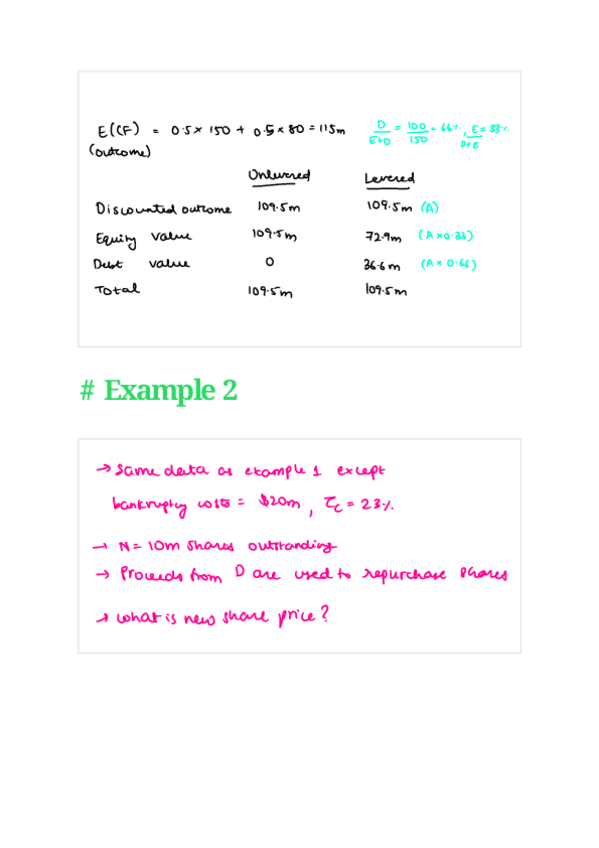 E(CF) = 0.5 x 150 + 0.5 x 80 = 115m
(outcome)
D/E+D = 100/150 = 66%, E/D+E = 33%
Unlevered Levered
Discounted outcome 109.5m 109.5m (A)
Equity Value 109.5m 72.9m (A x 0.33)
Debt value 0 36.6m (A x 0.66)
Total 109.5m 109.5m
# Example 2
→ Same data as example 1 except
bankruptcy costs = $20m, τc = 23%.
→ N = 10m shares outstanding
→ Proceeds from D are used to repurchase shares
→ what is new share price?